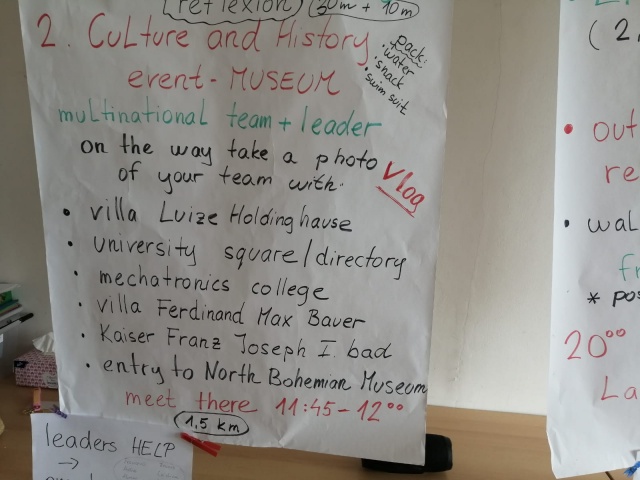 reflexion (30m + 10m)
2. Culture and History
event - MUSEUM
pack:
• water
• snack
• swim suit
multinational team + leader
on the way take a photo
of your team with:
Vlog
• villa Luize Holdinghause
• university square/directory
• mechatronics college
• villa Ferdinand Max Bauer
• Kaiser Franz Joseph I. bad
• entry to North Bohemian Museum
meet there 11:45 - 12⁰⁰
1,5 km
leaders HELP
→
(2,
• out
re
• wal
fr
* pos
20⁰⁰
La